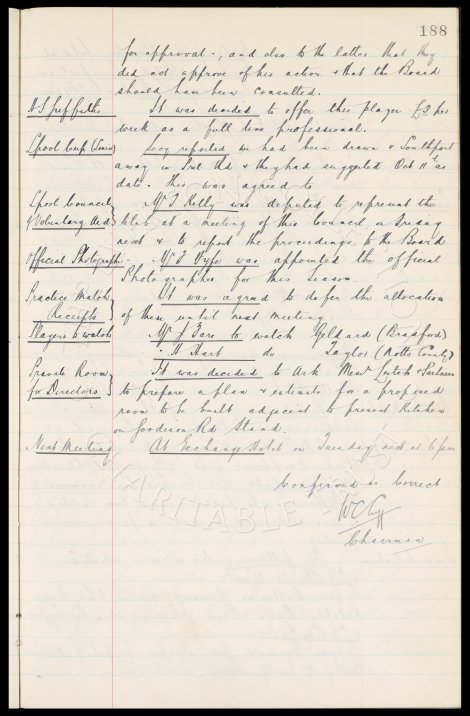 188
for approval -, and also to the latter that they
did not approve of his action & that the Board
should have been consulted.
H S Griffiths It was decided to offer this player £3 per
week as a full time professional.
Lpool Cup (Senior) Secy reported we had been drawn v Southport
away in 3rd Rd & they had suggested Oct 11th as
date. This was agreed to
Lpool Council Mr Kelly was deputed to represent the
& Voluntary Aid Club at a meeting of this Council on Friday
next & to report the proceedings to the Board
Official Photographer. Mr Fyfe was appointed the official
Photographer for this Season
Practice Match It was agreed to defer the allocation
Receipts of these until next meeting.
Players to watch Mr to watch Geldard (Bradford)
" H Hart do Taylor (Notts County)
Private Room It was decided to ask Messrs Leitch & Partners
for Directors to prepare a plan & estimate for a proposed
room to be built adjacent to present Kitchen
on Goodison Rd Stand.
Next Meeting At Exchange Hotel on Tuesday next at 6 pm
Confirmed as Correct
W C Cuff
Chairman
CHARITABLE TRUST